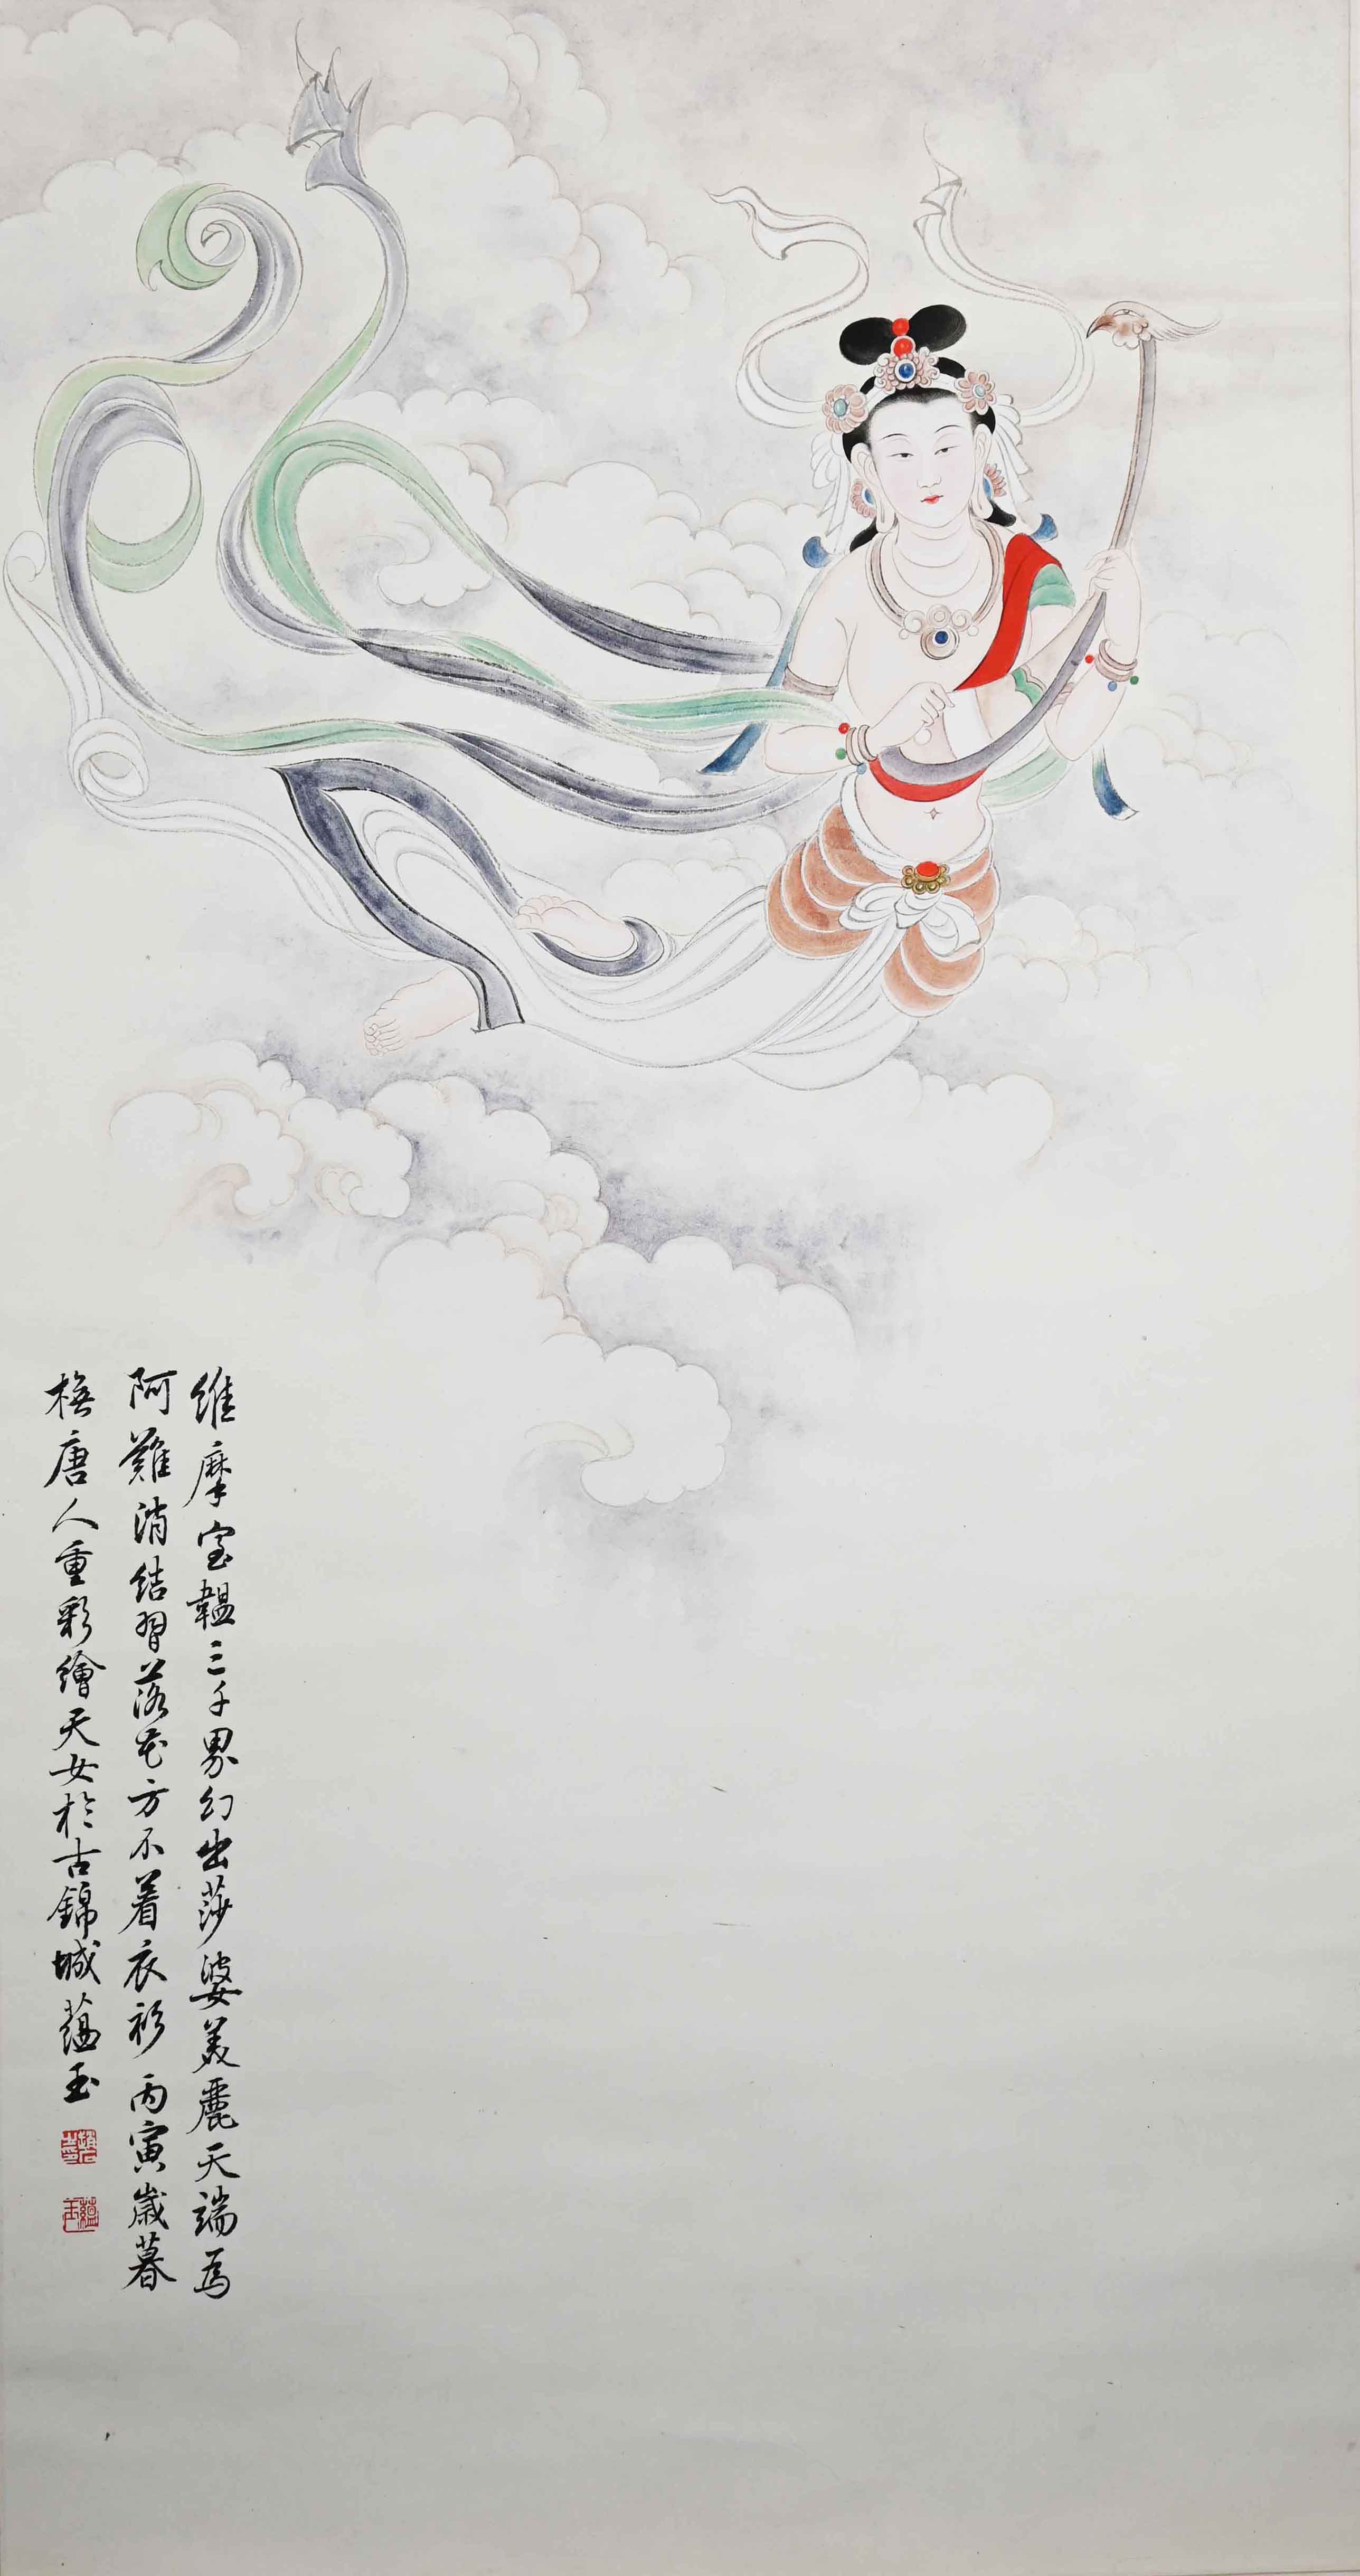 維摩室韞三千界幻出莎婆美麗天端為
阿難消結習落花方不着衣衫丙寅歲暮
橅唐人重彩繪天女於古錦城蘊玉
蘊玉